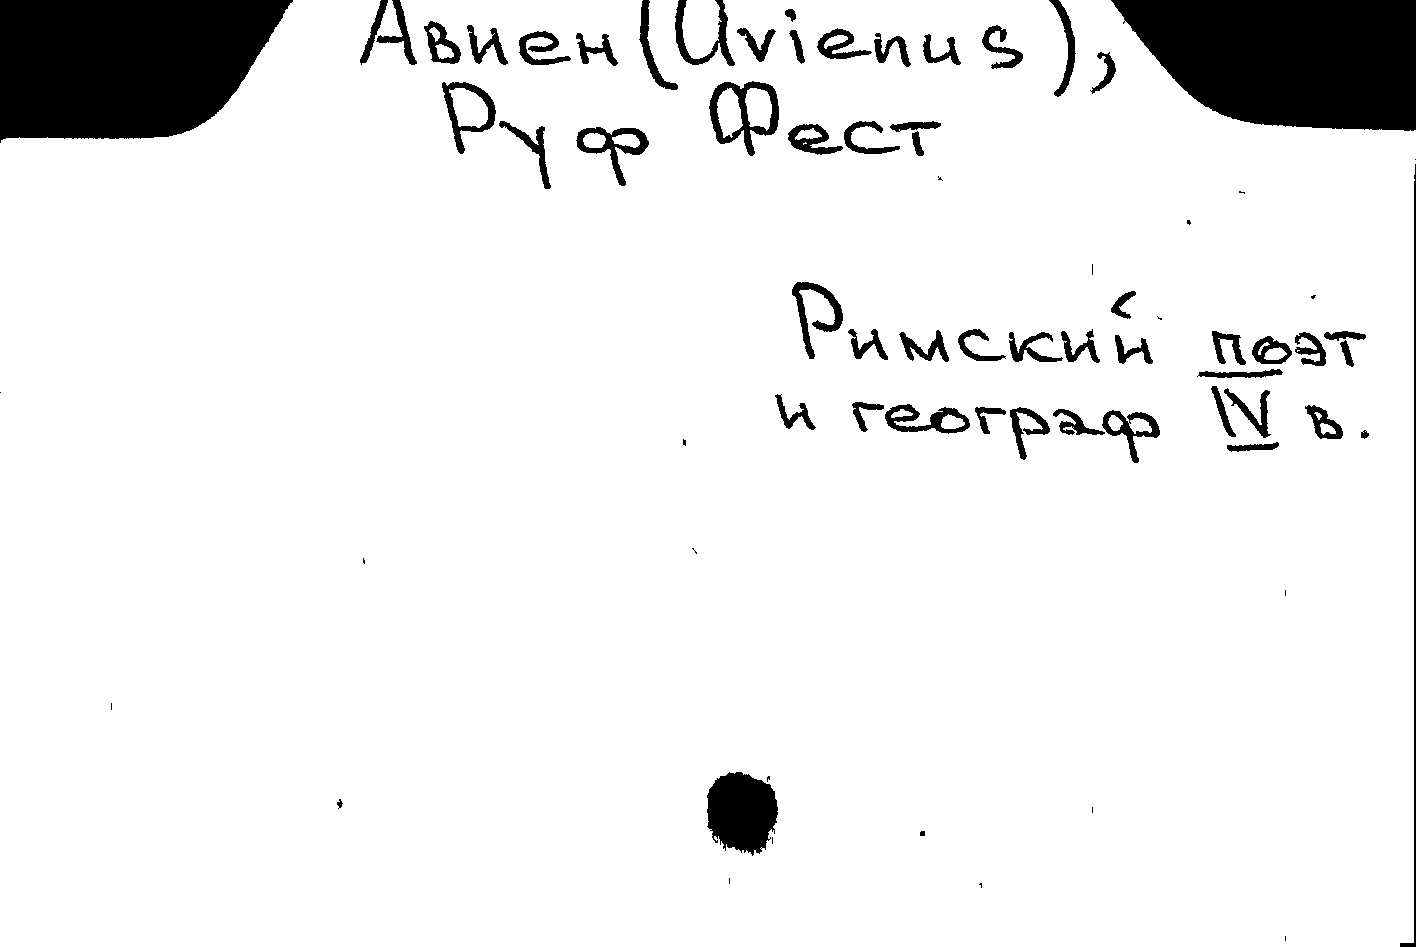 Авиен (Avienus),
Руф Фест
Римский поэт
и географ IV в.